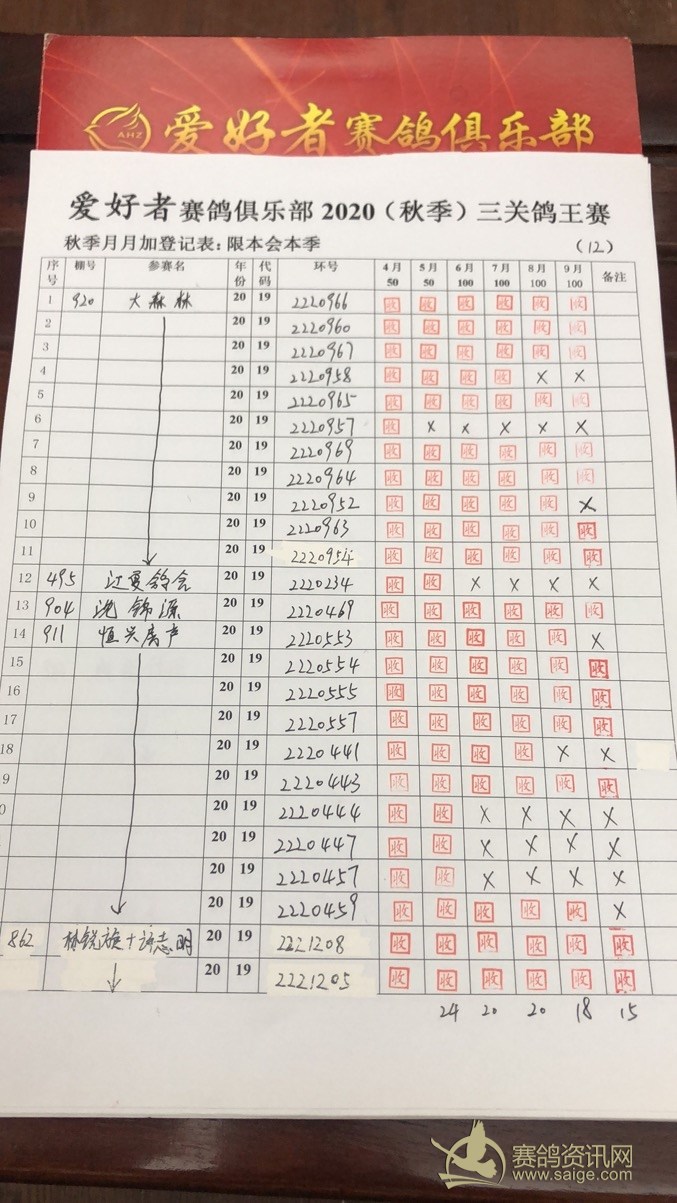 AHZ
爱好者赛鸽俱乐部
爱好者赛鸽俱乐部2020（秋季）三关鸽王赛
秋季月月加登记表：限本会本季 （12）
序号 棚号 参赛名 年份 代码 环号 4月50 5月50 6月100 7月100 8月100 9月100 备注
1 920 大森林 20 19 2220966 收 收 收 收 收 收
2 20 19 2220960 收 收 收 收 收 收
3 20 19 2220967 收 收 收 收 收 收
4 20 19 2220958 收 收 收 收 × ×
5 20 19 2220965 收 收 收 收 收 收
6 20 19 2220957 收 × × × × ×
7 20 19 2220969 收 收 收 收 收 收
8 20 19 2220964 收 收 收 收 收 收
9 20 19 2220952 收 收 收 收 收 ×
10 20 19 2220963 收 收 收 收 收 收
11 20 19 2220954 收 收 收 收 收 收
12 495 江夏鸽舍 20 19 2220234 收 收 × × × ×
13 904 沈锦源 20 19 2220469 收 收 收 收 收 收
14 911 恒兴房产 20 19 2220553 收 收 收 收 收 ×
15 20 19 2220554 收 收 收 收 收 收
16 20 19 2220555 收 收 收 收 收 收
17 20 19 2220557 收 收 收 收 收 收
18 20 19 2220441 收 收 收 收 × ×
9 20 19 2220443 收 收 收 收 收 收
0 20 19 2220444 收 收 × × × ×
20 19 2220447 收 收 × × × ×
20 19 2220457 收 收 × × × ×
20 19 2220459 收 收 收 收 收 ×
862 林锐旋+许志明 20 19 2221208 收 收 收 收 收 收
20 19 2221205 收 收 收 收 收 收
24 20 20 18 15
赛鸽资讯网
www.saige.com